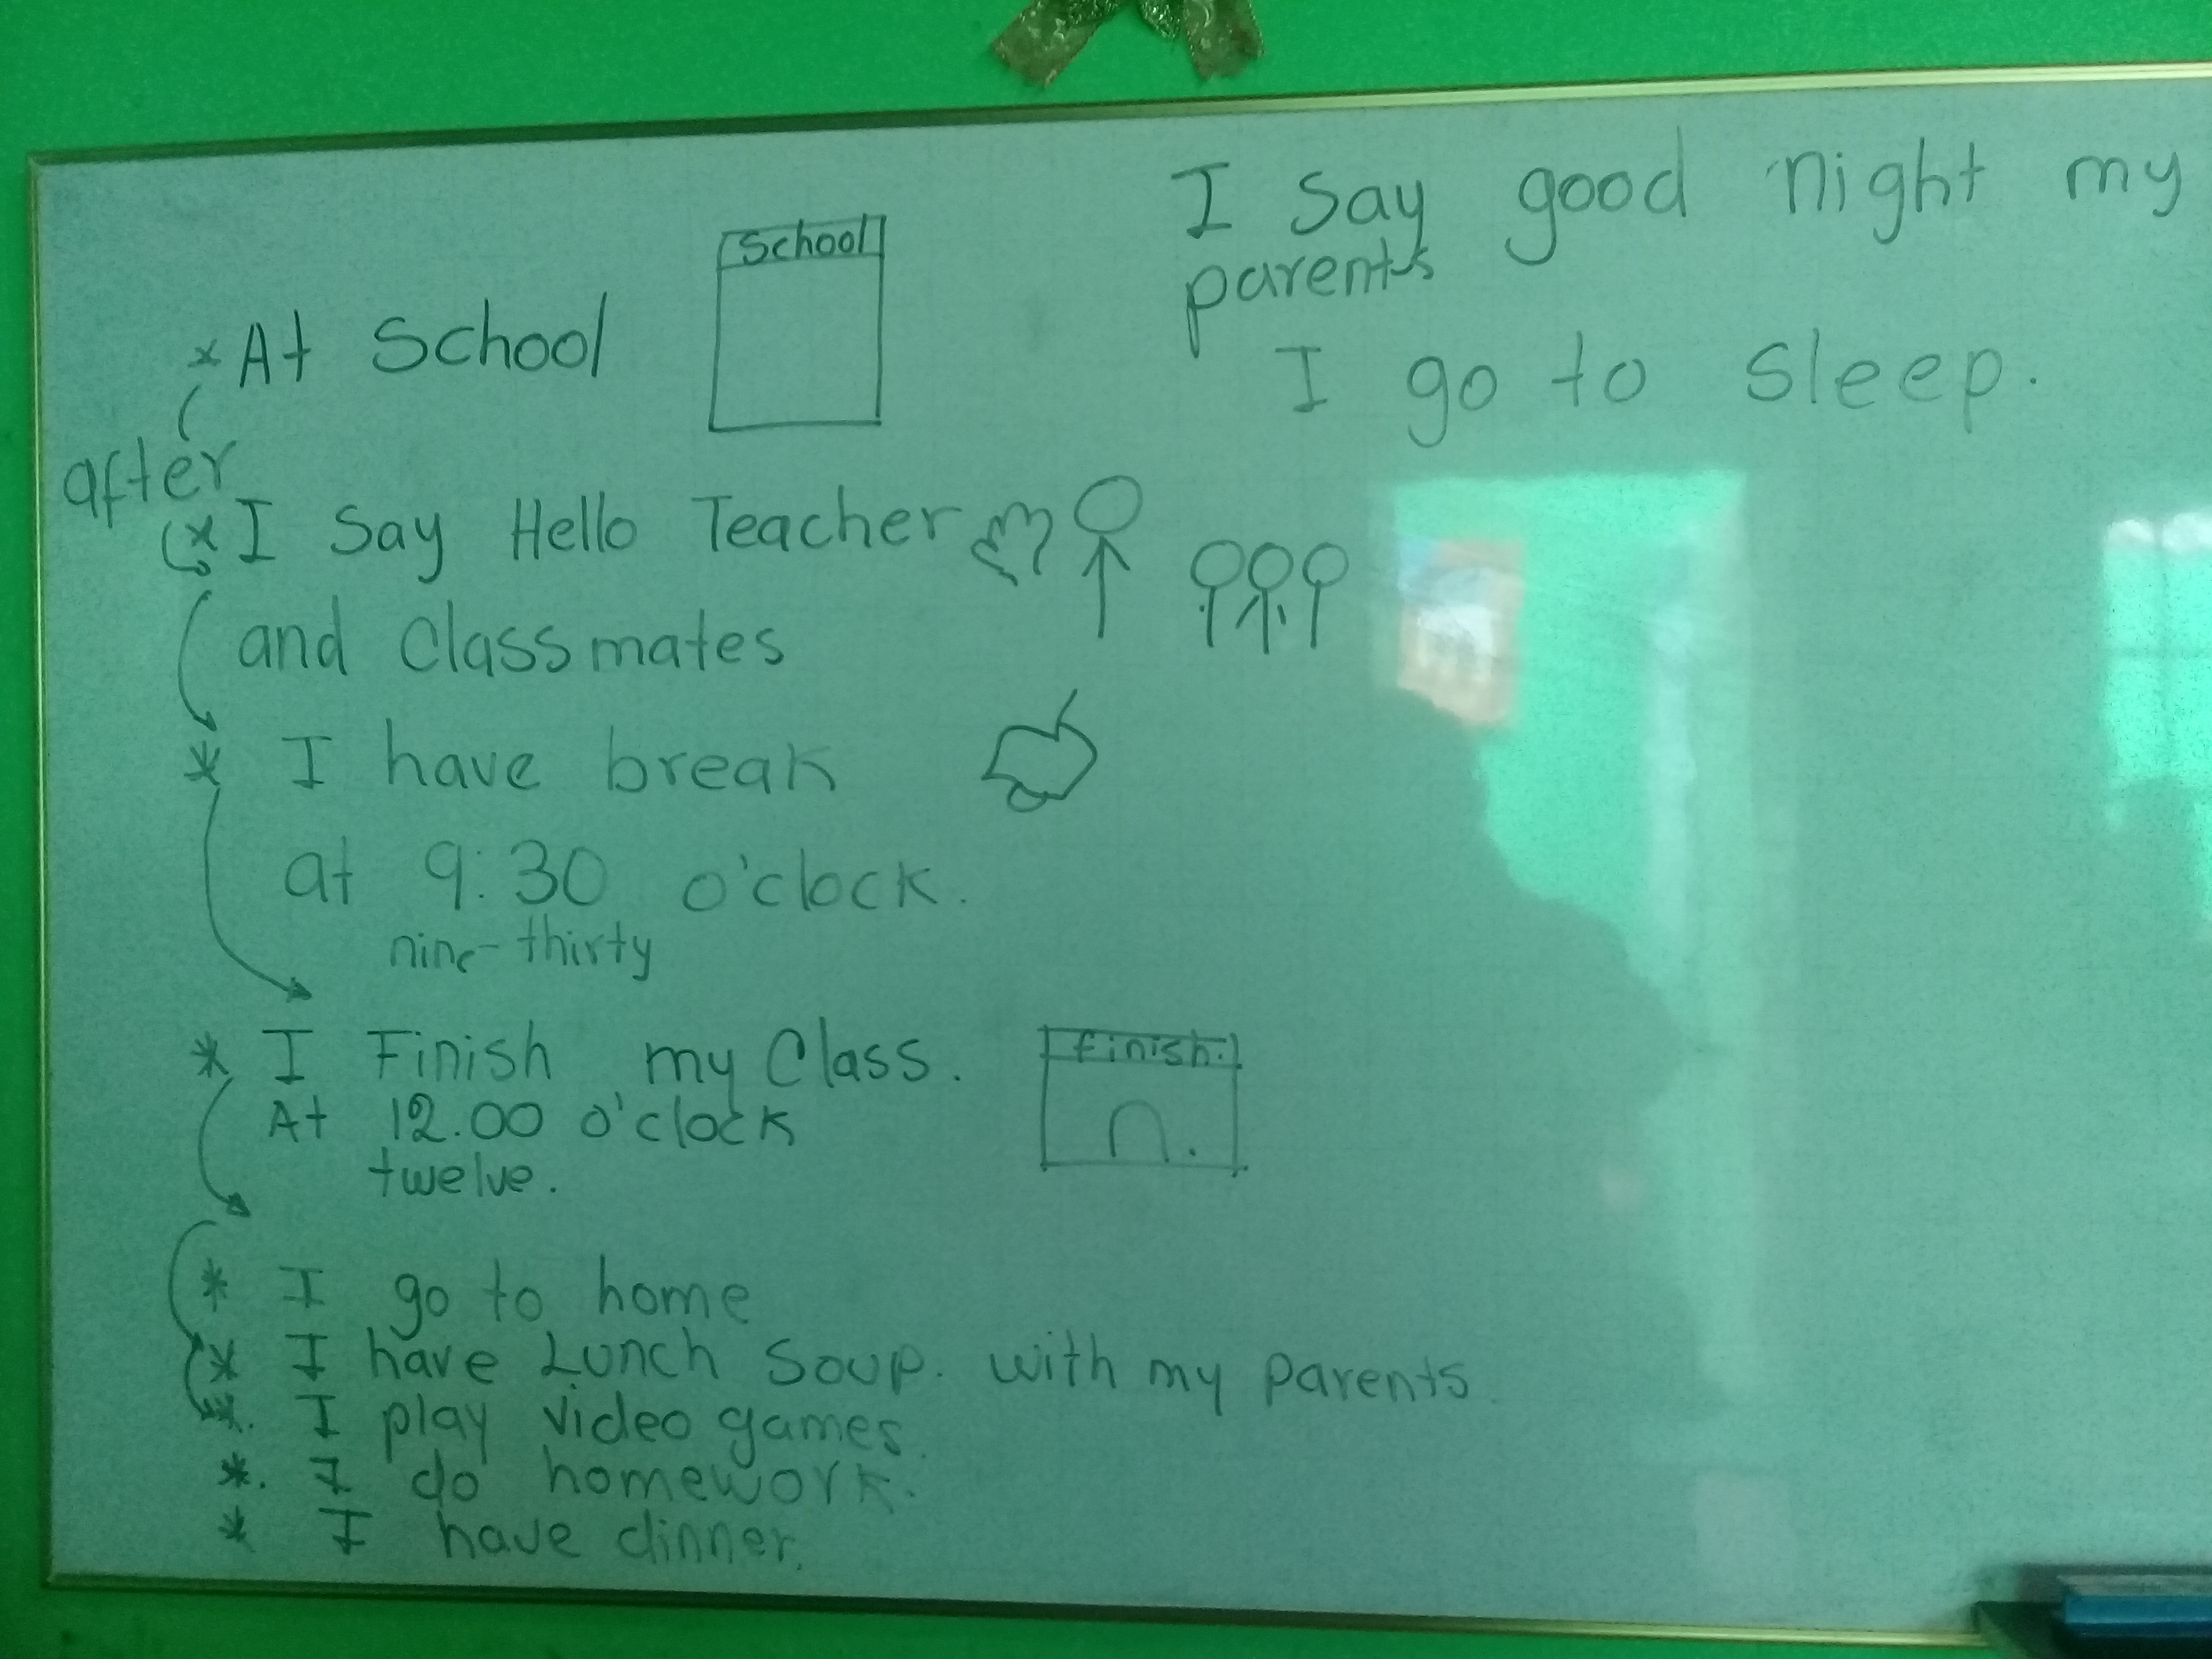 School
* At School
after
* I Say Hello Teacher
and Classmates
* I have break
at 9:30 o'clock.
nine-thirty
* I Finish my Class.
finish.
At 12.00 o'clock
twelve.
* I go to home
* I have Lunch Soup. with my parents.
*. I play video games.
*. I do homework.
* I have dinner.
I Say good night my
parents
I go to sleep.